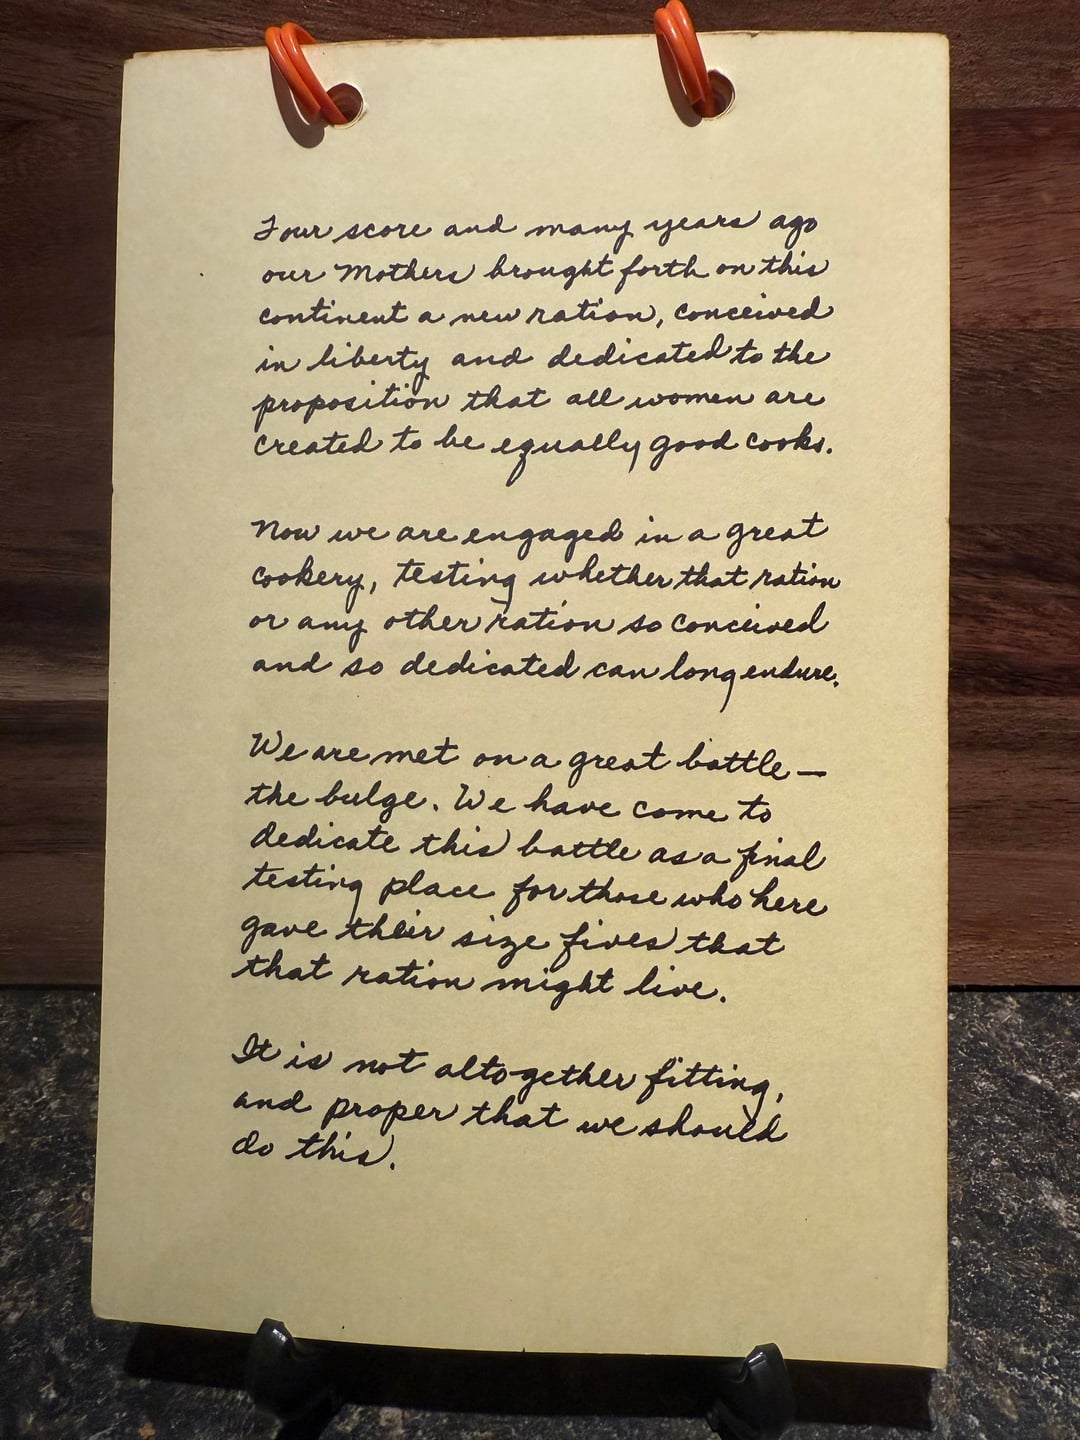 Four score and many years ago
our Mothers brought forth on this
continent a new ration, conceived
in liberty and dedicated to the
proposition that all women are
created to be equally good cooks.
Now we are engaged in a great
cookery, testing whether that ration
or any other ration so conceived
and so dedicated can long endure.
We are met on a great battle—
the bulge. We have come to
dedicate this battle as a final
testing place for those who here
gave their size fives that
that ration might live.
It is not altogether fitting,
and proper that we should
do this.